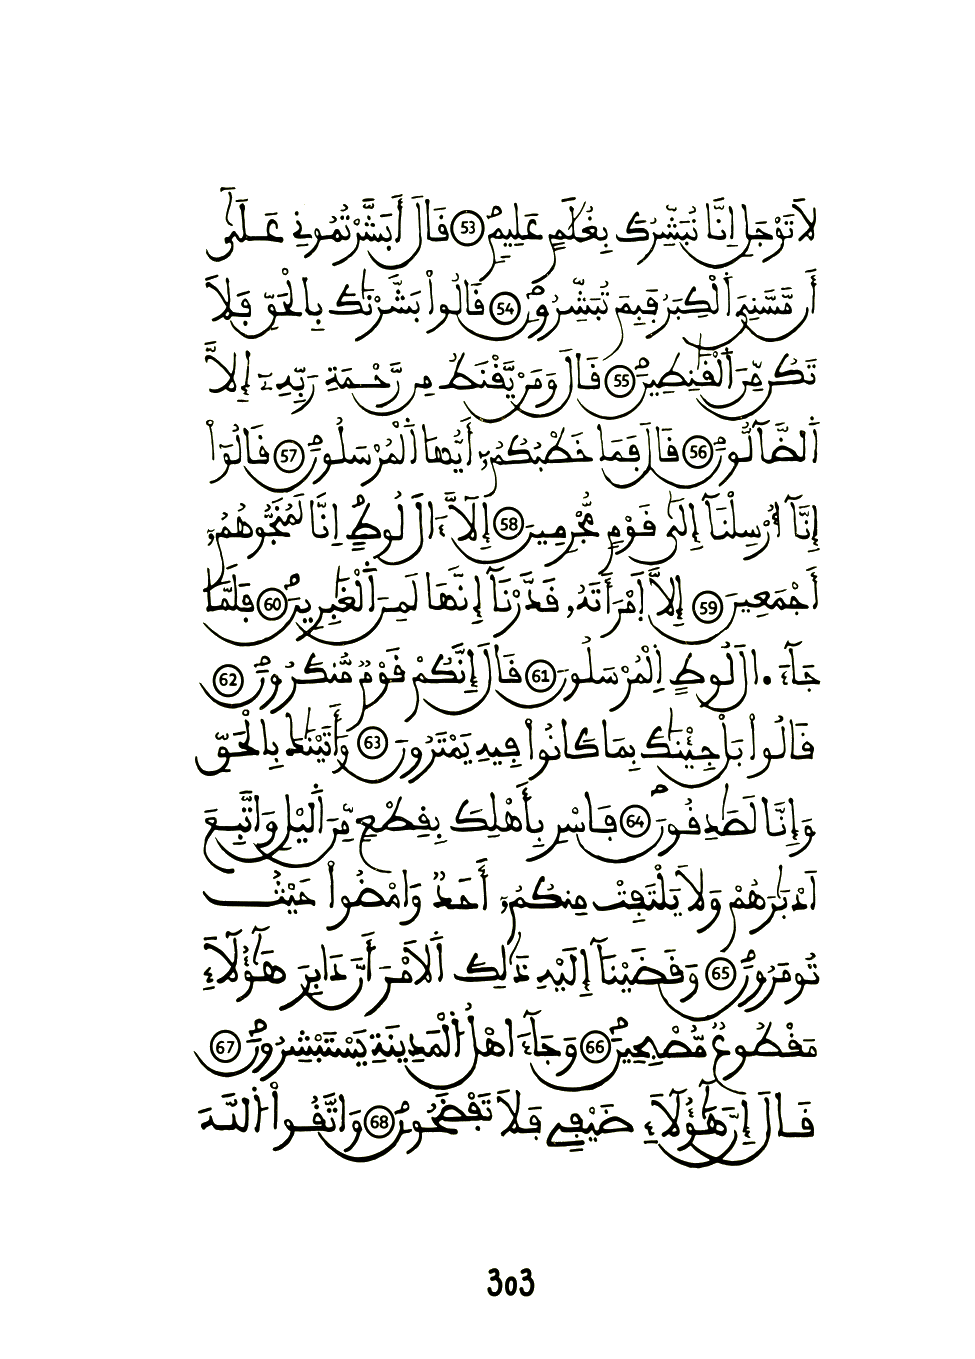 لَا تَوْجَلِ اِنَّا نُبَشِّرُكَ بِغُلَٰمٍ عَلِيمٍ 53 قَالَ أَبَشَّرْتُمُونِے عَلَىٰٓ
أَن مَّسَّنِيَ اَ۬لْكِبَرُ فَبِمَ تُبَشِّرُونِ 54 قَالُواْ بَشَّرْنَٰكَ بِالْحَقِّ فَلَا
تَكُن مِّنَ اَ۬لْقَٰنِطِينَ 55 قَالَ وَمَنْ يَّقْنَطُ مِن رَّحْمَةِ رَبِّهِۦٓ إِلَّا
اَ۬لضَّآلُّونَ 56 قَالَ فَمَا خَطْبُكُمُۥٓ أَيُّهَا اَ۬لْمُرْسَلُونَ 57 قَالُوٓاْ
إِنَّآ أُرْسِلْنَآ إِلَىٰ قَوْمٍ مُّجْرِمِينَ 58 إِلَّآ ءَالَ لُوطٍ اِنَّا لَمُنَجُّوهُمُۥٓ
أَجْمَعِينَ 59 إِلَّا اَ۪مْرَأَتَهُۥ قَدَّرْنَآ إِنَّهَا لَمِنَ اَ۬لْغَٰبِرِينَ 60 فَلَمَّا
جَآءَ الَ لُوطٍ اِ۬لْمُرْسَلُونَ 61 قَالَ إِنَّكُمْ قَوْمٌ مُّنكَرُونَ 62
قَالُواْ بَلْ جِئْنَٰكَ بِمَا كَانُواْ فِيهِ يَمْتَرُونَ 63 وَأَتَيْنَٰكَ بِالْحَقِّ
وَإِنَّا لَصَٰدِقُونَ 64 فَاسْرِ بِأَهْلِكَ بِقِطْعٍ مِّنَ اَ۬ليْلِ وَاتَّبِعَ
اَدْبَٰرَهُمْ وَلَا يَلْتَفِتْ مِنكُمُۥٓ أَحَدٌ وَامْضُواْ حَيْثُ
تُومَرُونَ 65 وَقَضَيْنَآ إِلَيْهِ ذَٰلِكَ اَ۬لَامْرَ أَنَّ دَابِرَ هَٰٓؤُلَآءِ
مَقْطُوعٌ مُّصْبِحِينَ 66 وَجَآءَ اهْلُ اُ۬لْمَدِينَةِ يَسْتَبْشِرُونَ 67
قَالَ إِنَّ هَٰٓؤُلَآءِ ضَيْفِے فَلَا تَفْضَحُونِ 68 وَاتَّقُواْ اُ۬للَّهَ
303